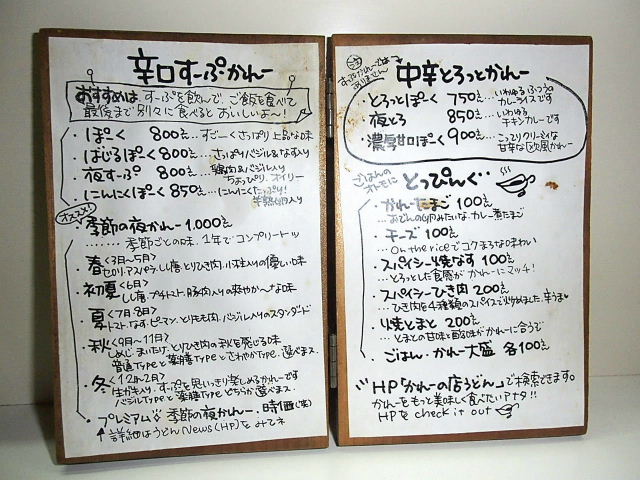 辛口すーぷかれー
おすすめは、すーぷを飲んで、ご飯を食べて
最後まで別々に食べるとおいしいよ〜!
・ぽーく 800えん…すごーくさっぱり上品な味
・ばじるぽーく 800えん…さっぱりバジル&なす入り
・夜すーぷ 800えん…鶏肉&バジル入り
ちょっぴり、オイリー
・にんにくぽーく 850えん…にんにくたっぷり!
半熟卵入り
オススメ!
季節の夜かれー 1.000えん
……季節ごとの味、1年でコンプリートッ
・春<3月~5月>
セロリ、アスパラ、しし唐、とりひき肉、小柱入りの優しい味
・初夏<6月>
しし唐、プチトマト、豚肉入りの爽やかな味
・夏<7月8月>
トマト、なす、ピーマン、とりもも肉、バジル入りのスタンダード
・秋<9月~11月>
しめじ、まいたけ、とりひき肉の秋を感じる味
普通Typeと薬膳Typeとさわやか Type、選べまス。
・冬<12月~2月>
生ガキ入り、すーぷを思いっきり楽しめるかれーです
バジルTypeと薬膳Typeどちらか選べまス。
・プレミアム 季節の夜かれー、時価(笑)
詳細はうどんNews(HP)をみてネ
ご注意
すーぷかれーでは
ありません
中辛とろっとかれー
・とろっとぽーく 750えん…いわゆるふつうの
カレーライスです
・夜とろ 850えん…いわゆる
チキンカレーです
・濃厚甘口ぽーく 900えん…こってりクリーミィな
甘辛な欧風かれー
ごはんの
オトモに
とっぴんぐ・・
・かれーたまご 100えん
…おでんの卵みたいな、カレー煮たまご
・チーズ 100えん
…On the riceでコクまろな味わい
・スパイシー焼なす 100えん
…とろっとした食感がかれーにマッチ!
・スパイシーひき肉 200えん
…ひき肉を4種類のスパイスで炒めました、辛うま
・焼とまと 200えん
…とまとの甘味と酸味がかれーに合うで
・ごはん・かれー大盛 各100えん
HP「かれーの店うどん」で検索できます。
かれーをもっと美味しく食べたいアナタ!!
HPを check it out